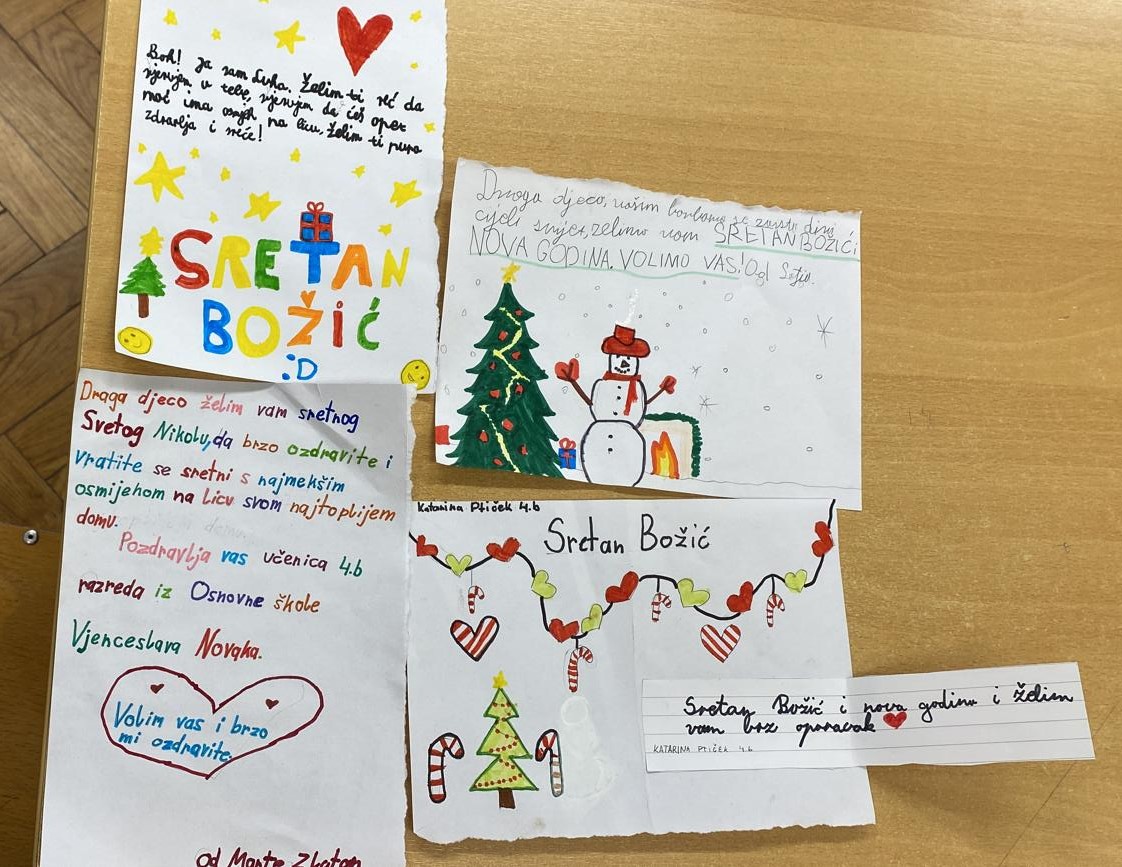 Bok! Ja sam Luka. Želim ti reć da
vjerujem u tebe, vjerujem da ćeš opet
moć ima osmjeh na licu, želim ti puno
zdravlja i sreće!
SRETAN
BOŽIĆ
:D
Draga djeco, vašim borbama se zaista divi
cijeli svijet, želimo vam SRETAN BOŽIĆ i
NOVA GODINA. VOLIMO VAS! Od
Draga djeco želim vam sretnog
Svetog Nikolu, da brzo ozdravite i
vratite se sretni s najmekšim
osmijehom na licu svom najtoplijem
domu.
Pozdravlja vas učenica 4.b
razreda iz Osnovne škole
Vjenceslava Novaka.
Volim vas i brzo
mi ozdravite.
od Marte Zlatar
Katarina Ptiček 4.b
Sretan Božić
Sretan Božić i nova godina i želim
vam brz oporavak
KATARINA PTIČEK 4.b